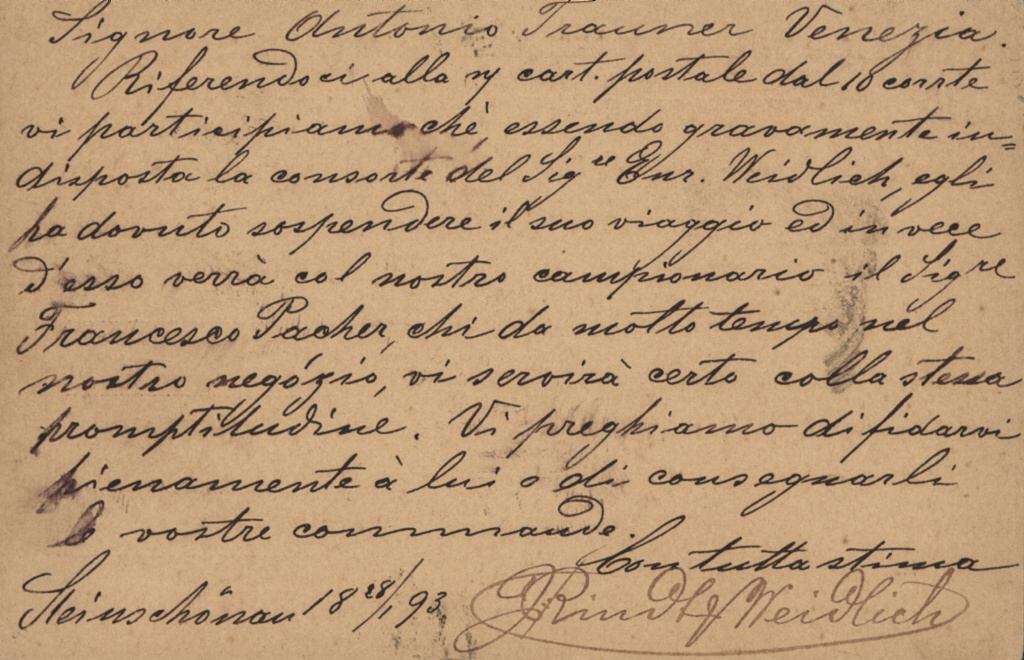 Signore Antonio Trauner Venezia.
Riferendoci alla ny cart. postale dal 10 corrte
vi participiamo chè, essendo gravamente in=
disposta la consorte del Sigre Enr. Weidlich, egli
ha dovuto sospendere il suo viaggio ed in vece
d'esso verrà col nostro campionario il Sigre
Francesco Pacher, chi da molto tempo nel
nostro negózio, vi servirà certo colla stessa
promptitudine. Vi preghiamo di fidarvi
pienamente à lui o di consegnarli
le vostre commande.
Con tutta stima
Steinschönau 18 28/1 93 Rindt & Weidlich